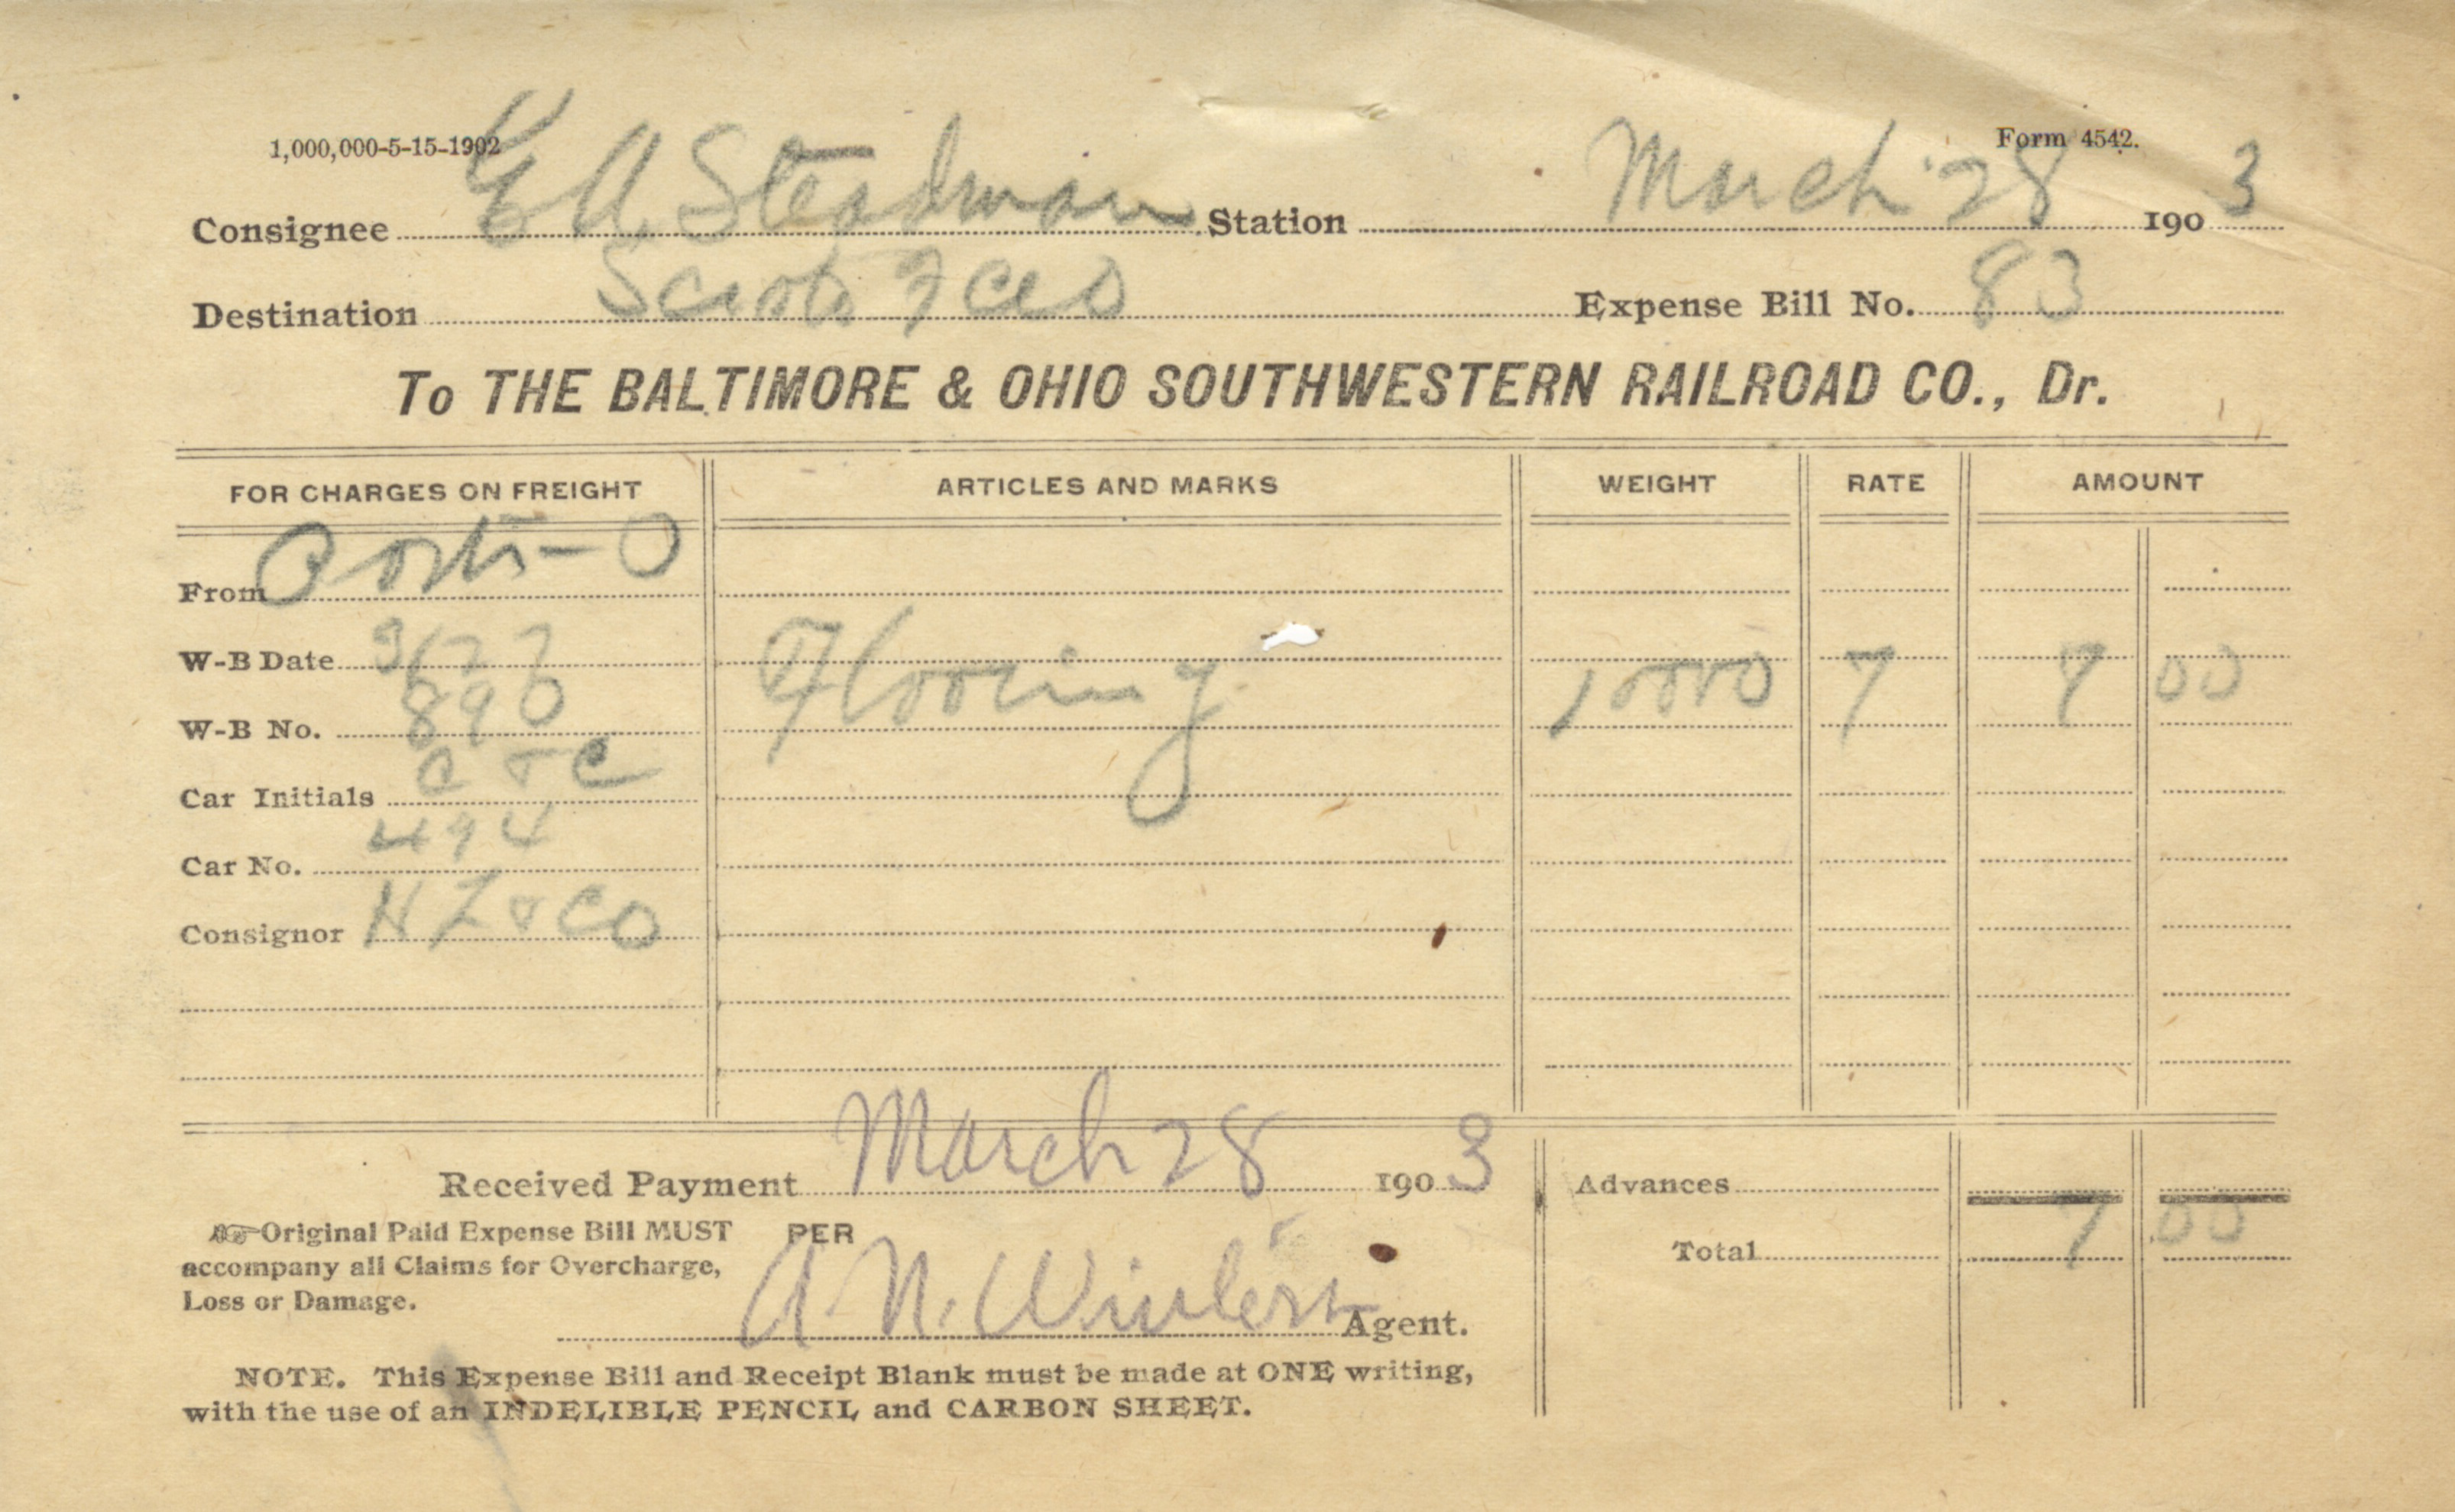 1,000,000-5-15-1902
Form 4542.
Consignee E A Steadman Station March 28 1903
Destination Expense Bill No. 83
To THE BALTIMORE & OHIO SOUTHWESTERN RAILROAD CO., Dr.
FOR CHARGES ON FREIGHT ARTICLES AND MARKS WEIGHT RATE AMOUNT
From Ports - O
W-B Date 3/27 Flooring 10000 7 7 00
W-B No. 890
Car Initials
Car No. 494
Consignor
Received Payment March 28 1903 Advances
☞Original Paid Expense Bill MUST PER
accompany all Claims for Overcharge,
Loss or Damage.
Total 7 00
A. N. Winters Agent.
NOTE. This Expense Bill and Receipt Blank must be made at ONE writing,
with the use of an INDELIBLE PENCIL and CARBON SHEET.